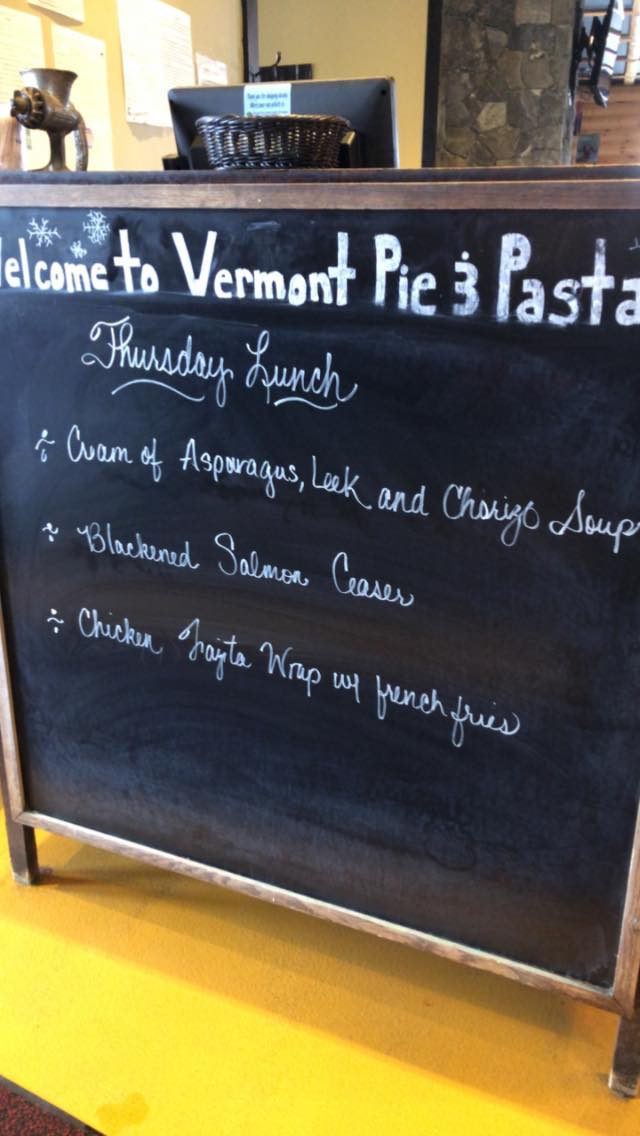 Welcome to Vermont Pie & Pasta
Thursday Lunch
Cream of Asparagus, Leek and Chorizo Soup
Blackened Salmon Ceaser
Chicken Fajita Wrap w/ french fries